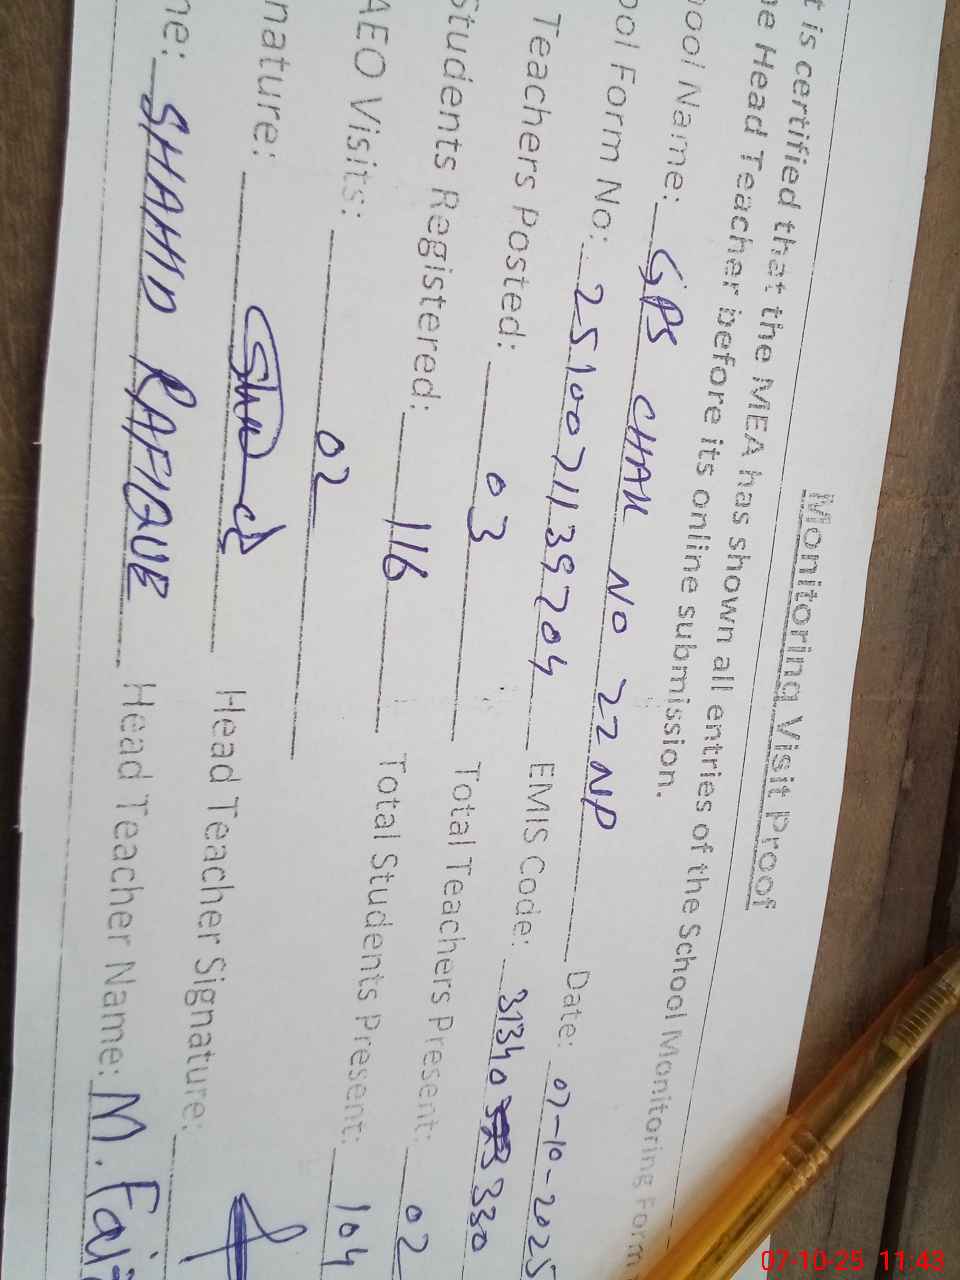 Monitoring Visit Proof
t is certified that the MEA has shown all entries of the School Monitoring Form
he Head Teacher before its online submission.
hool Name: GPS CHAK NO 22 NP Date: 07-10-2025
ool Form No: 2510071139204 EMIS Code: 31340 330
Teachers Posted: 03 Total Teachers Present: 02
Students Registered: 116 Total Students Present: 104
AEO Visits: 02
nature: Head Teacher Signature:
me: SHAHID RAFIQUE Head Teacher Name: M. Fai
07-10-25 11:43